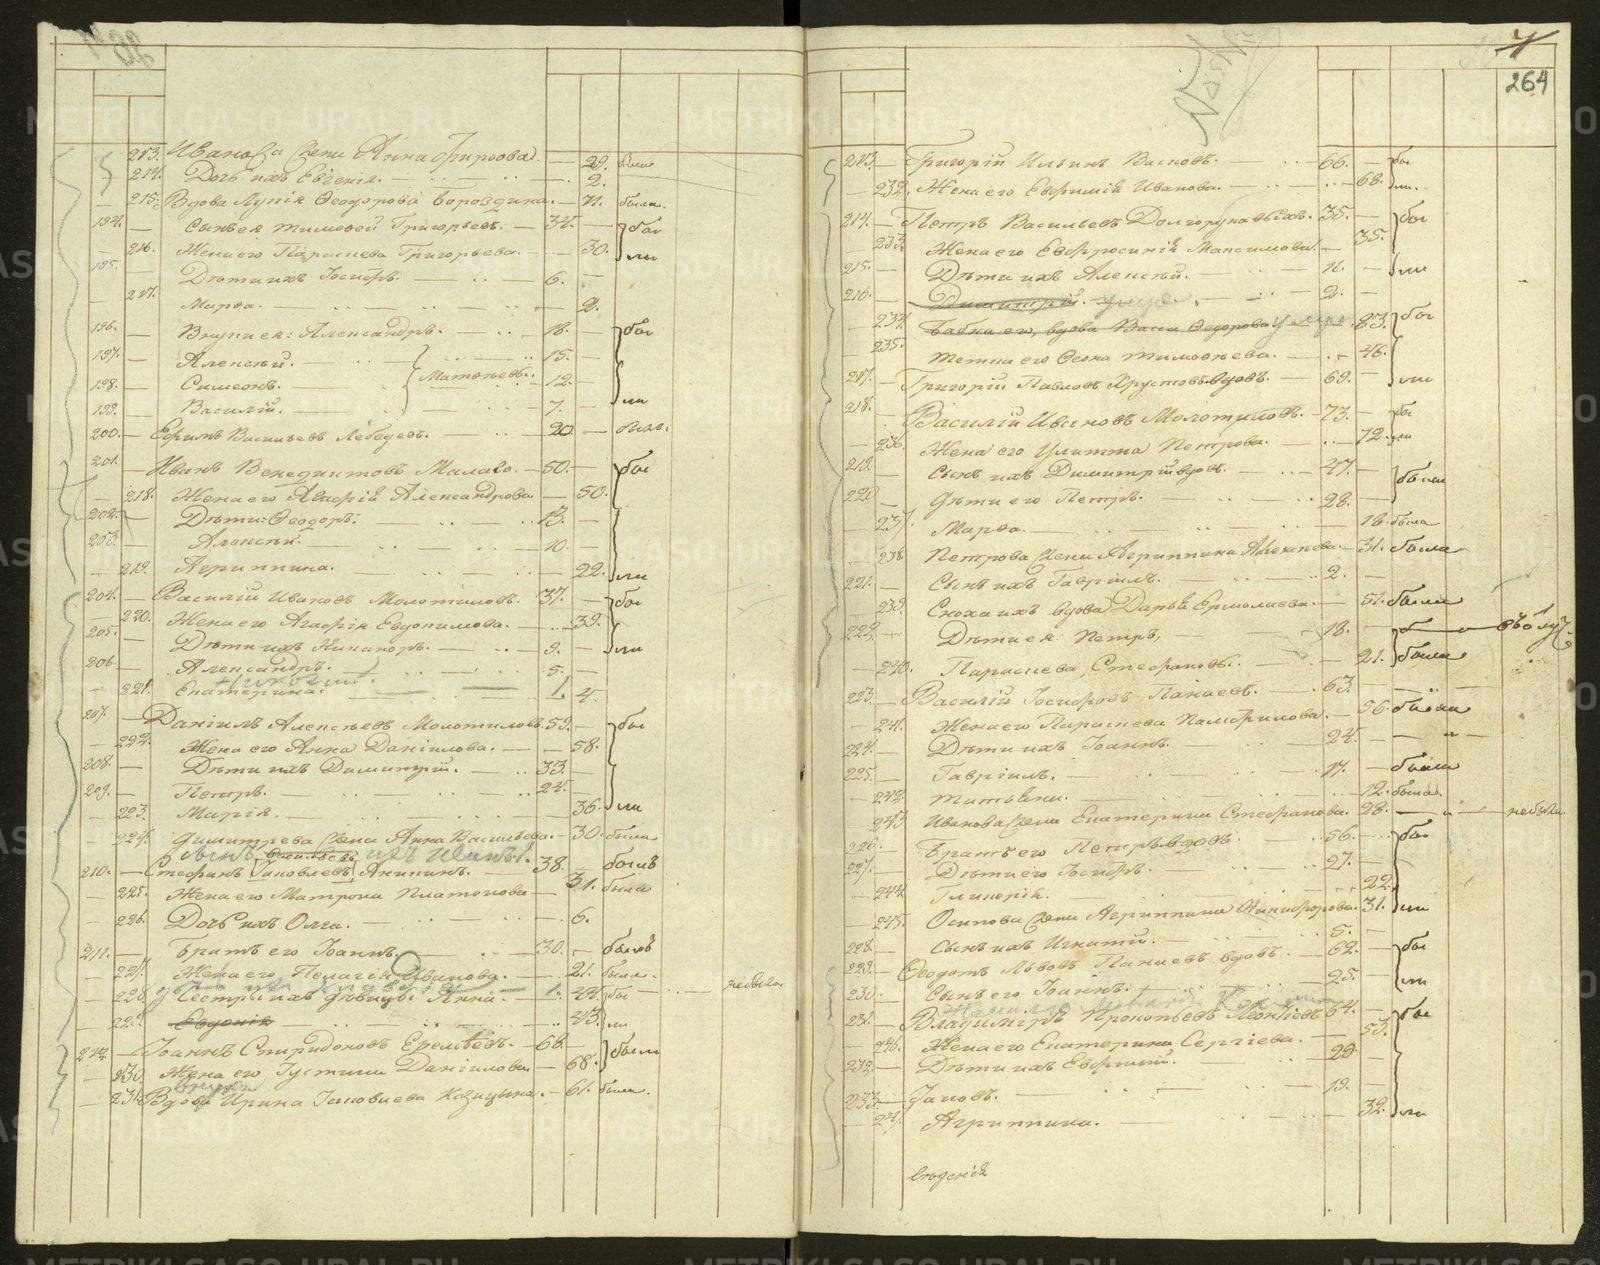 213. Иванова жена Анна — 29. была
214. Дочь ихъ Евгенія. — 2.
215. Вдова Лукія Ѳеодорова Бороздина. — 71. была.
194. — Сынъ ея Тимоѳей Григорьевъ. — 34. — бы
216. Жена его Параскева Григорьева. — 30. ли
195. — Дѣти ихъ Іосифъ. — 6. —
217. Марѳа. — 2.
196. — Внуки ея: Александръ. — 18. — бы
197. — Алексѣй. — 15. —
Матѳѣевы.
198. — Симеонъ. — 12. —
199. — Василій. — 7. — ли
200. — Ефимъ Васильевъ Лебедевъ. — 20. — былъ.
201. — Иванъ Венедиктовъ — 50. — бы
218. Жена его Агафія Александрова — 50.
202. — Дѣти: Ѳеодоръ. — 13. —
203. — Алексѣй. — 10. —
219. Агриппина. — 22. ли
204. — Василій Ивановъ Молотиловъ. 37. — бы
220. Жена его Агафія Евдокимова. — 39.
205. — Дѣти ихъ Никаноръ. — 9. — ли
206. — Александръ. — 5. —
221. Екатерина. — 4.
207. — Даніилъ Алексѣевъ Молотиловъ. 59. — бы
222. Жена его Анна Даніилова. — 58.
208. — Дѣти ихъ Димитрій. — 33. —
209. — Петръ. — 24. —
223. Марія. — 36. ли
224. Димитріева жена Анна Васильева — 30. была
210. — Стефанъ Яковлевъ Аникинъ. — 38. — былъ
225. Жена его Матрона Платонова — 31. была
226. Дочь ихъ Олга. — 6.
211. — Братъ его Іоаннъ. — 30. — былъ
227. Жена его Пелагія Иванова. — 21. была.
228. Сестры ихъ дѣвицы Анна. — 44. бы — не была
229. Евдокія — 43. ли
212. — Іоаннъ Спиридоновъ — 68. — были
230. Жена его Іустина Даніилова — 68.
231. Вдова Ирина Яковлева — 61. была.
4
264
213. — Григорій Ильинъ — 66. — бы
232. Жена его Евфимія Иванова. — 68. ли.
214. — Петръ Васильевъ Долгоруковыхъ. 35. — бы
233. Жена его Евфросинія Максимова. — 35.
215. — Дѣти ихъ Алексѣй. — 11. — ли
216. — Димитрій. умре. — 2. —
234. Бабка его, вдова Васса Ѳедорова умре 83. бы
235. Тетка его Ѳекла Тимоѳеева. — 46.
217. — Григорій Павловъ Хрустовъ вдовъ. — 69. — ли
218. — Василій Ивановъ Молотиловъ. — 73. — бы
236. Жена его Улитта Петрова. — 72. ли
219. — Сынъ ихъ Димитрій вдовъ. — 47. — были
220 — Дѣти его Петръ. — 28. —
237. Марѳа. — 18. была
238. Петрова жена Агриппина Алексѣева. — 31. была
221. — Сынъ ихъ Гавріилъ. — 2. —
239. Сноха ихъ вдова Дарья Ермолаева. — 51. были
222. — Дѣти ея: Петръ, — 18. —
240. Параскева, Стефановы. — 21. была
223. — Василій Іосифовъ Панаевъ. — 63. —
241. Жена его Параскева Памфилова. — 56. была
224. — Дѣти ихъ Іоаннъ. — 24. —
225. — Гавріилъ. — 17. — были
242. Татьяна. — 12. была
243 Иванова жена Екатерина Стефанова. 28. — не была
226. — Братъ его Петръ вдовъ. — 56. — бы
227. — Дѣти его Іосифъ. — 27. —
244. Гликерія. — 22.
245. Осипова жена Агриппина Никифорова. 31. ли
228. — Сынъ ихъ Игнатій. — 5. —
229. — Ѳеодотъ Львовъ Панаевъ вдовъ. — 62. — бы
230. — Сынъ его Іоаннъ. — 25. — ли
231. — Владиміръ Прокопьевъ Леонтіевъ 54. — бы
246. Жена его Екатерина Сергіева. — 53.
232. — Дѣти ихъ Евфимій. — 29 —
233. — Іаковъ. — 19. —
247. Агриппина. — 32. ли